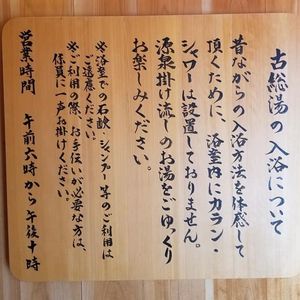 古総湯の入浴について
昔ながらの入浴方法を体感して
頂くために、浴室内にカラン・
シャワーは設置しておりません。
源泉掛け流しのお湯をごゆっくり
お楽しみください。
※浴室での石鹸・シャンプー等のご利用は
ご遠慮ください。
※ご利用の際、お手伝いが必要な方は、
係員に一声お掛けください。
営業時間 午前六時から午後十時